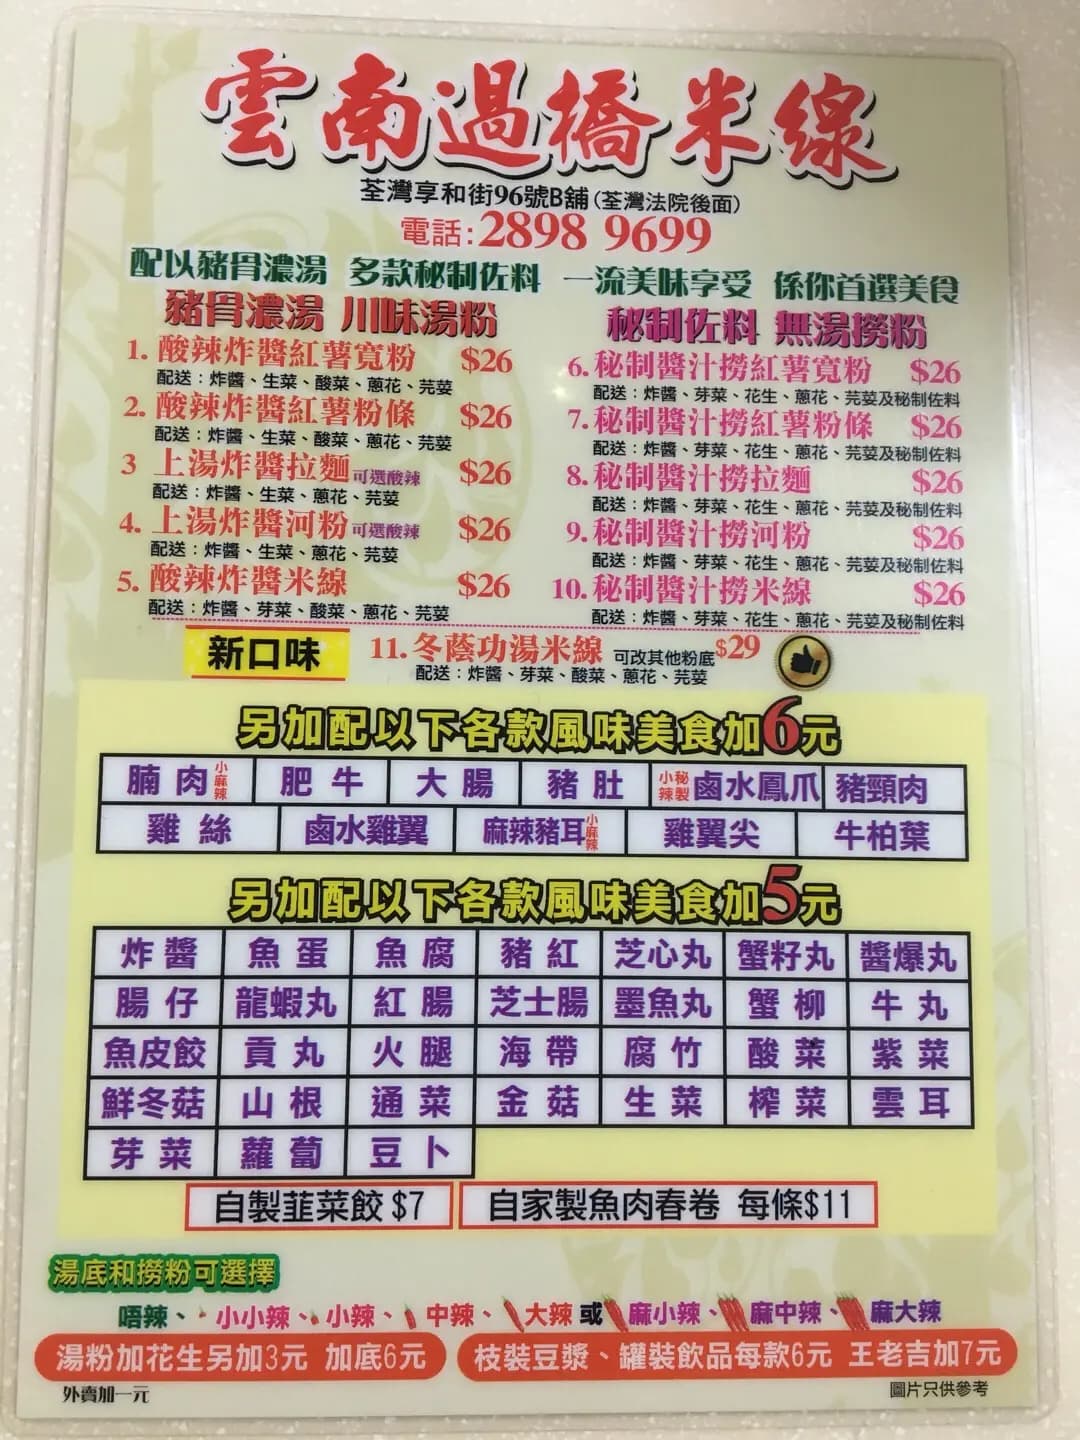 雲南過橋米線
荃灣享和街96號B舖(荃灣法院後面)
電話:2898 9699
配以豬骨濃湯 多款秘制佐料 一流美味享受 係你首選美食
豬骨濃湯 川味湯粉
1. 酸辣炸醬紅薯寬粉 $26
配送：炸醬、生菜、酸菜、蔥花、芫荽
2. 酸辣炸醬紅薯粉條 $26
配送：炸醬、生菜、酸菜、蔥花、芫荽
3 上湯炸醬拉麵 可選酸辣 $26
配送：炸醬、生菜、蔥花、芫荽
4. 上湯炸醬河粉 可選酸辣 $26
配送：炸醬、生菜、蔥花、芫荽
5. 酸辣炸醬米線 $26
配送：炸醬、芽菜、酸菜、蔥花、芫荽
秘制佐料 無湯撈粉
6. 秘制醬汁撈紅薯寬粉 $26
配送：炸醬、芽菜、花生、蔥花、芫荽及秘制佐料
7. 秘制醬汁撈紅薯粉條 $26
配送：炸醬、芽菜、花生、蔥花、芫荽及秘制佐料
8. 秘制醬汁撈拉麵 $26
配送：炸醬、芽菜、花生、蔥花、芫荽及秘制佐料
9. 秘制醬汁撈河粉 $26
配送：炸醬、芽菜、花生、蔥花、芫荽及秘制佐料
10. 秘制醬汁撈米線 $26
配送：炸醬、芽菜、花生、蔥花、芫荽及秘制佐料
新口味 11. 冬蔭功湯米線 可改其他粉底 $29
配送：炸醬、芽菜、酸菜、蔥花、芫荽
另加配以下各款風味美食加6元
腩肉 小麻辣 肥牛 大腸 豬肚 小辣 秘製 鹵水鳳爪 豬頸肉
雞絲 鹵水雞翼 麻辣豬耳 小麻辣 雞翼尖 牛柏葉
另加配以下各款風味美食加5元
炸醬 魚蛋 魚腐 豬紅 芝心丸 蟹籽丸 醬爆丸
腸仔 龍蝦丸 紅腸 芝士腸 墨魚丸 蟹柳 牛丸
魚皮餃 貢丸 火腿 海帶 腐竹 酸菜 紫菜
鮮冬菇 山根 通菜 金菇 生菜 榨菜 雲耳
芽菜 蘿蔔 豆卜
自製韮菜餃 $7 自家製魚肉春卷 每條$11
湯底和撈粉可選擇
唔辣、小小辣、小辣、中辣、大辣 或 麻小辣、麻中辣、麻大辣
湯粉加花生另加3元 加底6元 枝裝豆漿、罐裝飲品每款6元 王老吉加7元
外賣加一元 圖片只供參考